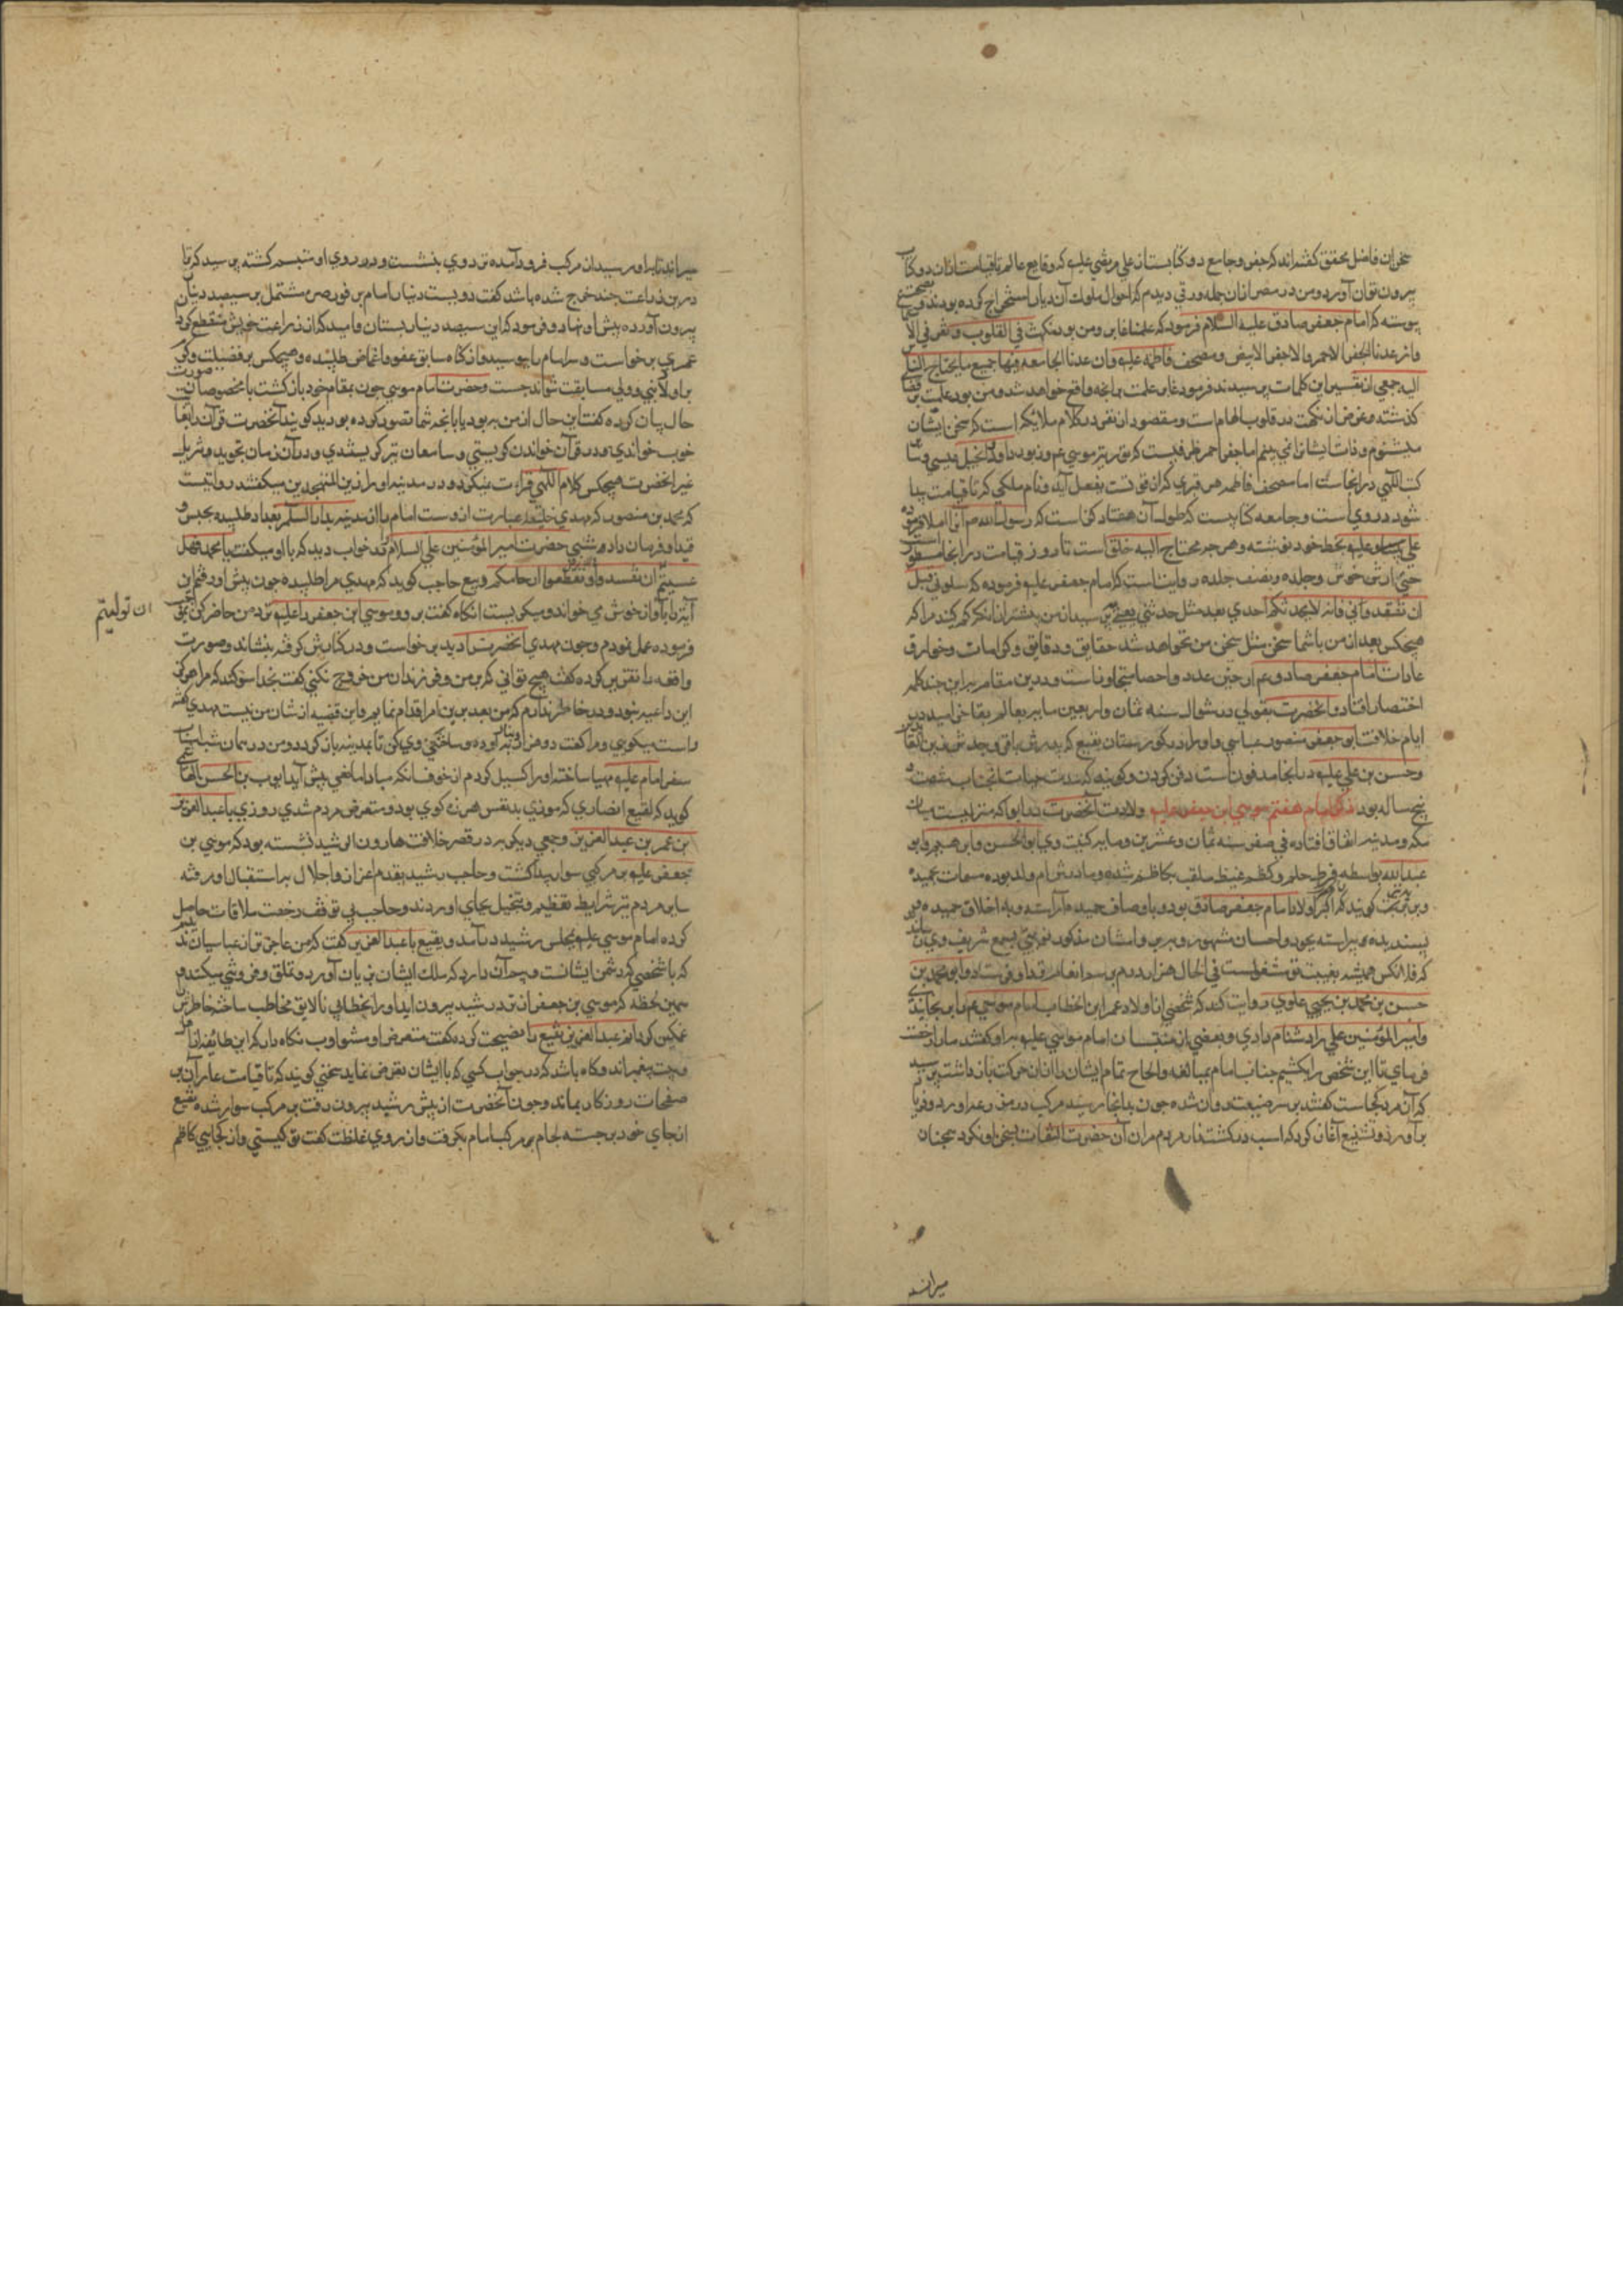 سخنان فاضل محقق گفته اند که جفر و جامع دو کتابست از علی مرتضی علیه که وقایع عالم تا قیامت از آن دو کتاب
بیرون توان آورد و من در مصر از آن جمله ورقی دیدم که احوال ملوک آن دیار استخراج کرده بودند و
پوسته که امام جعفر صادق علیه السلام فرمود که علمنا غابر و مزبور و نکت فی القلوب و نقر فی الا
وان عندنا الجفر الاحمر والاجفر الابیض و مصحف فاطمه علیه وان عندنا الجامعه فیها جمیع مایحتاج الناس
الیه جمعی از تفسیر این کلمات پرسیدند فرمود غابر علمت بدانچه واقع خواهد شد و مزبور علمت بر
گذشته و غرض از نکت در قلوب الهام است و مقصود از نقر در کلام ملایکه است که سخن ایشان
میشنوم و ذات ایشان را نمی بینم اما جفر احمر ظرفیست که توریة موسی عم و زبور داود و انجیل عیسی و
کتب الهی در انجاست اما مصحف فاطمه هر خبری که از قوت بفعل آید و نام ملکی که تا قیامت پیدا
شود در وی است و جامعه کتابیست که طول آن هفتاد گز است که رسول الله صم آنرا املا فرموده
علی علیه بخط خود نوشته و هر چه محتاج الیه خلق است تا روز قیامت در انجا مسطور
حتی ارش خدش و جلده و نصف جلده روایت است که امام جعفر علیه فرموده که سلونی قبل
ان تفقدوانی فانه لا یحدثکم احدی بعد مثل حدیثی یعنی بپرسید از من پیشتر از آنکه گم کنید مرا که
هیچکس بعد از من با شما سخن مثل سخن من نخواهد شد حقایق و دقایق و کرامات و خوارق
عادات امام جعفر صادق عم از حیز عدد و احصا متجاوز است و درین مقام برین چند کلمه
اختصار افتاد و انحضرت بقولی در شوال سنه ثمان واربعین مایه بعالم بقا خرامید در
ایام خلافت ابو جعفر منصور عباسی و او را در گورستان بقیع که پدرش باقر و جدش زین العابدین
و حسن بن علی علیه در انجا مدفون است دفن کردند و گویند که مدت حیات انجناب شصت و
پنج ساله بود ذکر امام هفتم موسی ابن جعفر علیه ولادت آنحضرت در ابوا که منزلیست میان
مکه و مدینه اتفاق افتاده فی صفر سنه ثمان و عشرین و مایه کنیت وی ابو الحسن و ابو ابراهیم و ابو
عبدالله بواسطه فرط حلم و کظم غیظ ملقب بکاظم شده و مادرش ام ولد بوده مسمات بحمیده
گویند که اکبر اولاد امام جعفر صادق بود و باوصاف حمیده آراسته و به اخلاق
پسندیده پیراسته بجود و احسان مشهور و ببر و امتنان مذکور
که فلانکس همیشه بغیبت تو مشغولست فی الحال هزار درم برسم انعام نزد او فرستاد و ابو محمد بن
حسن بن محمد بن یحیی علوی روایت کند که شخصی از اولاد عمر ابن الخطاب امام موسی عم را برنجانیدی
و امیر المؤمنین علی را دشنام دادی و بعضی از منتسبان امام موسی علیه با او گفتند ما را رخصت
فرمای تا این شخص را بکشیم جناب امام بمبالغه و الحاح تمام ایشان را از آن حرکت باز داشت پرسید
که آن مرد کجاست گفتند بر سر ضیعت و روان شده چون بدانجا رسید مرکب در مزرعه او راند و فریاد
برآورد و تشنیع آغاز کرد که اسب در کشتزار مردم مران آن حضرت التفات بسخن او نکرد همچنان
میراند
میراند تا باو رسید از مرکب فرود آمده نزد وی بنشست و در روی او متبسم گشته پرسید که ترا
درین زراعت چند خرج شده باشد گفت دویست دینار امام بر فور صره مشتمل بر سیصد دینار
بیرون آورده پیش او نهاد و فرمود که این سیصد دینار بستان و امید که از زراعت خویش منتفع گردی
عمری برخواست و سر امام را بوسید و از گناه سابق عفو و اغماض طلبیده و هیچکس بر فضیلت و کرم
بر اولاد نبی و ولی مسابقت نتواند جست و حضرت امام موسی چون بمقام خود بازگشت با مخصوصان صورت
حال بیان کرده گفت این حال از من بهتر بود یا بآنچه شما تصور کرده بودید گویند آنحضرت قرآن را بغایت
خوب خواندی و در قرآن خواندن گریستی و سامعان نیز گریستندی و در آن زمان بتجوید و ترتیل
غیر انحضرت هیچکس کلام الهی قراءت نمیکرد و در مدینه او را زین المتهجدین میگفتند روایتست
که محمد بن منصور که مهدی خلیفه عبارت از وست امام را از مدینه بدار السلم بغداد طلبیده بحبس و
قید او فرمان داد و شبی حضرت امیر المؤمنین علی السلام در خواب دید که با او میگفت یا محمد فهل
عسیتم ان تفسدوا فی الارض وتقطعوا ارحامکم ربیع حاجب گوید که مهدی مرا طلبیده چون پیش او رفتم این
ان تولیتم
آیه را بآواز خوش می خواند و میگریست انگاه گفت برو و موسی ابن جعفر را علیه نزد من حاضر کن بموجب
فرموده عمل نمودم و چون مهدی انحضرت را دید برخواست و در کنارش گرفته بنشاند و صورت
واقعه را تقریر کرده گفت هیچ توانی که بر من و فرزندان من خروج نکنی گفت بخدا سوگند که مرا هرگز
این داعیه نبود و در خاطر ندارم که من بعد برین امر اقدام نمایم و این قضیه از شان من نیست مهدی گفت
راست میگویی و مرا گفت دو هزار دینار آورده و ساختگی وی کن تا بمدینه باز گردد و من در همان شب اسباب
سفر امام علیه مهیا ساخته او را گسیل کردم از خوف انکه مبادا مانعی پیش آید ایوب بن الحسن الهاشمی
گوید که نفیع انصاری که موذی بدنفس هرزه گوی بود و متعرض مردم شدی روزی با عبدالعزیز
بن عمر بن عبدالعزیز و جمعی دیگر بر در قصر خلافت هارون الرشید نشسته بود که موسی بن
جعفر علیه بر مرکبی سوار پیدا گشت و حاجب رشید بقدم اعزاز و اجلال باستقبال او رفته
سایر مردم نیز شرایط تعظیم و تبجیل بجای اوردند و حاجب بی توقف رخصت ملاقات حاصل
کرده امام موسی علیه بمجلس رشید درآمد و نفیع با عبدالعزیز گفت که من عاجزتر از عباسیان
که با شخصی که دشمن ایشانست و سر آن دارد که ملک ایشان بزیان آورد و تملق و فروتنی میکنند
همین لحظه که موسی بن جعفر از نزد رشید بیرون اید او را بخطابی نالایق مخاطب ساخته خاطرش
غمگین گردانم عبدالعزیز نفیع را نصیحت کرده گفت متعرض او مشو و ادب نگاه دار که این طایفه
بیت پیغمبراند و گاه باشد که در جواب کسی که با ایشان تعرض نماید سخنی گویند که تا قیامت عار آن بر
صفحات روزگار بماند و چون آنحضرت از پیش رشید بیرون رفت بر مرکب سوار شده نفیع
از جای خود برجسته لجام مرکب امام بگرفت و از روی غلظت گفت تو کیستی و از کجایی کاظم